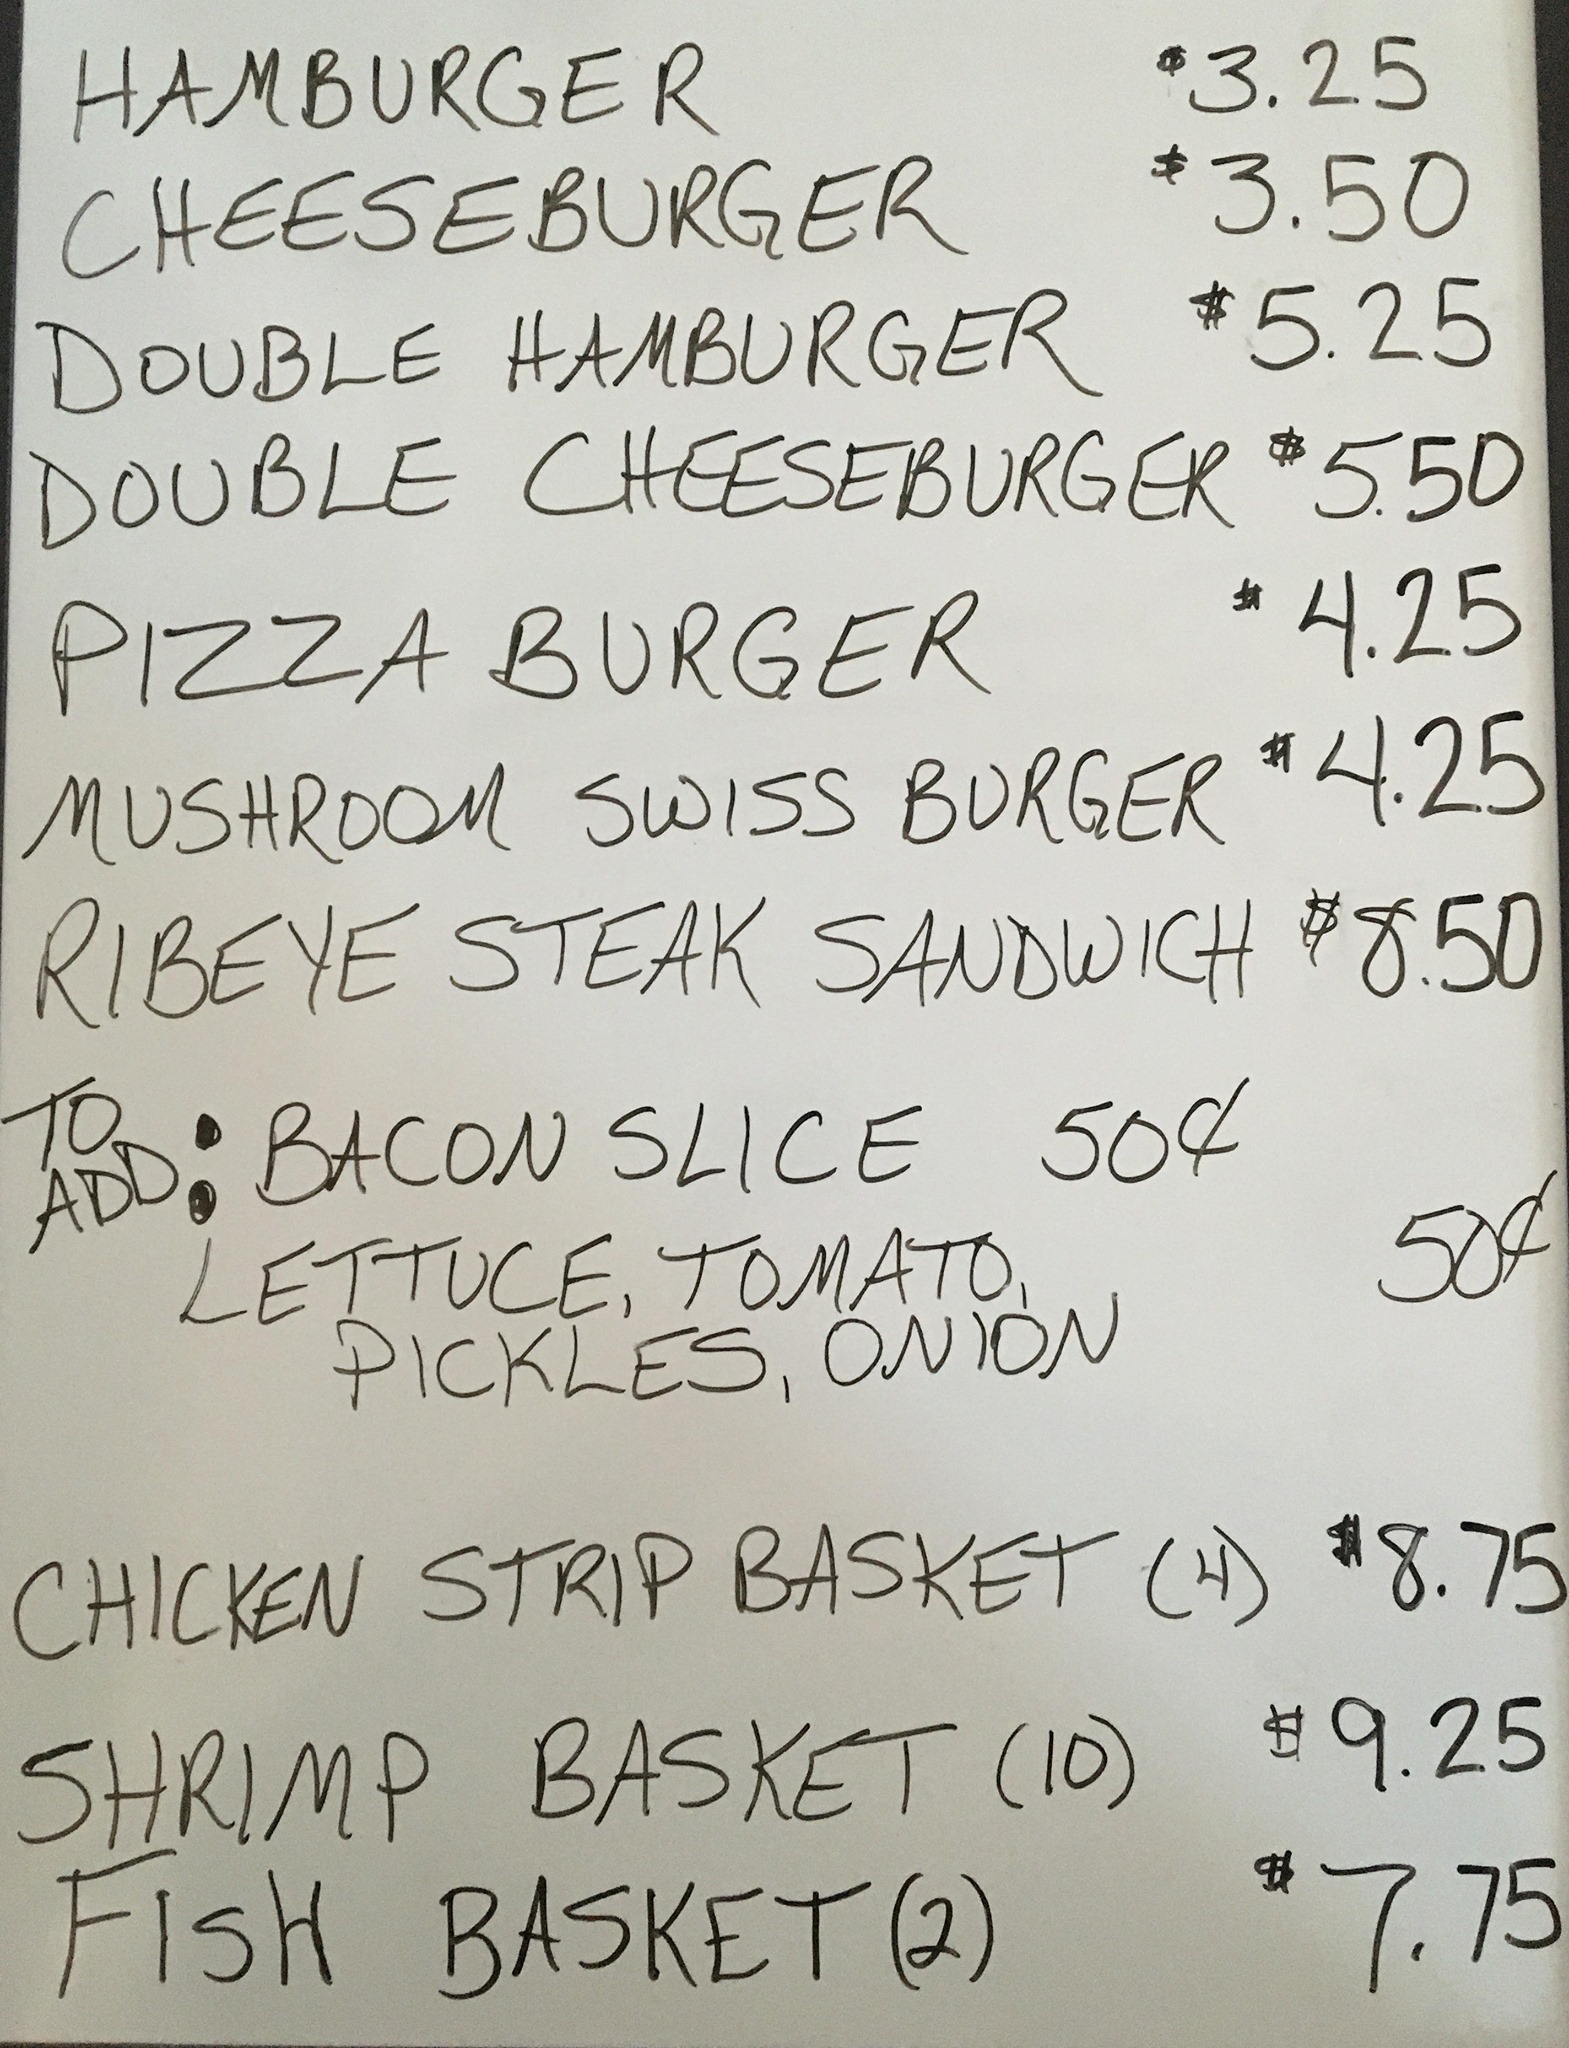 HAMBURGER $3.25
CHEESEBURGER $3.50
DOUBLE HAMBURGER $5.25
DOUBLE CHEESEBURGER $5.50
PIZZA BURGER $4.25
MUSHROOM SWISS BURGER $4.25
RIBEYE STEAK SANDWICH $8.50
TO ADD: BACON SLICE 50¢
LETTUCE, TOMATO, 50¢
PICKLES, ONION
CHICKEN STRIP BASKET (4) $8.75
SHRIMP BASKET (10) $9.25
FISH BASKET (2) $7.75